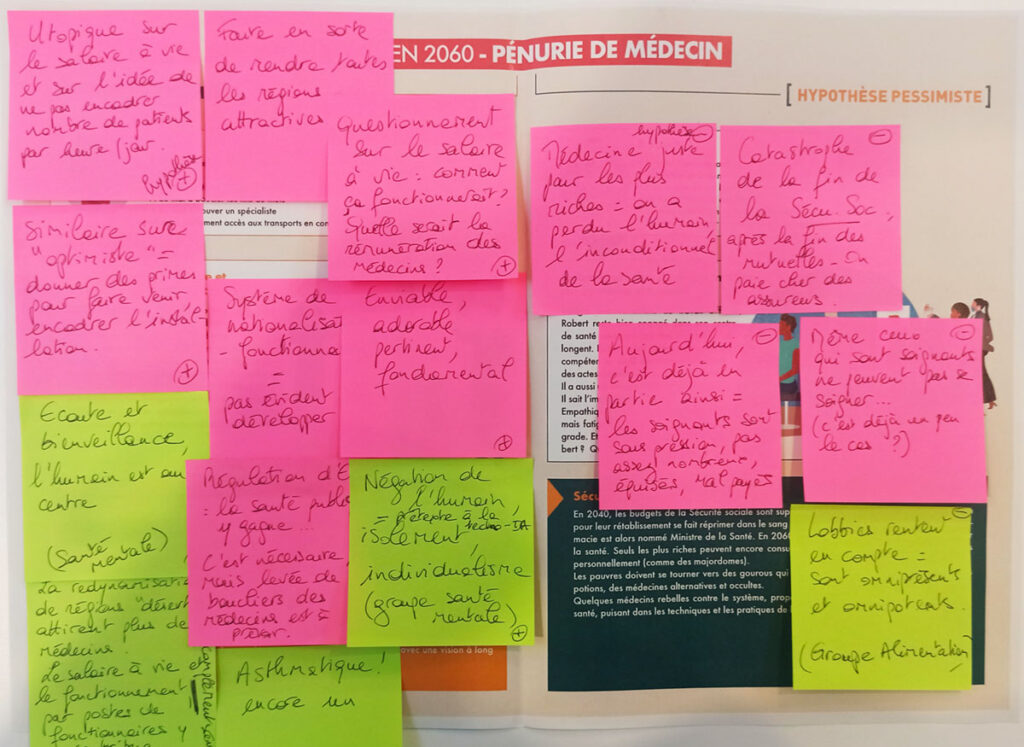 EN 2060 - PÉNURIE DE MÉDECIN
[ HYPOTHÈSE PESSIMISTE ]
Utopique sur
le salaire à vie
et sur l'idée de
ne pas encadrer
nombre de patients
par heure/jour.
hypothèse
+
Faire en sorte
de rendre toutes
les régions
attractives
Questionnement
sur le salaire
à vie : comment
ça fonctionnerait ?
Quelle serait la
rémunération des
médecins ?
+
ouver un spécialiste
ment accès aux transports en com
Similaire sur
"optimiste" =
donner des primes
pour faire venir,
encadrer l'instal-
lation.
+
Système de
nationalisat
- fonctionnai
=
pas évident
développer
Enviable,
adorable
pertinent,
fondamental
+
Ecoute et
bienveillance,
l'humain est au
centre
(Santé
mentale)
Régulation d'E
= la santé publi
y gagne...
C'est nécessaire,
mais levée de
boucliers des
médecins est à
prévoir.
Négation de
l'humain,
= prétexte à la
techno-IA
isolement,
individualisme
(groupe santé
mentale)
+
La redynamisatio
de régions "désert
attirent plus de
médecins.
Le salaire à vie et
le fonctionnement
par postes de
fonctionnaires y
Asthmatique !
encore un
avec une vision à long
hypothèse -
Médecine juste
pour les plus
riches = on a
perdu l'humain,
l'inconditionnel
de la santé
-
Catastrophe
de la fin de
la Sécu. Soc,
après la fin des
mutuelles - On
paie cher des
assureurs.
-
Aujourd'hui,
c'est déjà en
partie ainsi =
les soignants sont
sous pression, pas
assez nombreux,
épuisés, mal payés
-
Même ceux
qui sont soignants
ne peuvent pas se
soigner...
(c'est déjà un peu
le cas ?)
de santé
longent.
compéten
des actes
Il a aussi
Il sait l'im
Empathiq
mais fatig
grade. Et
bert ? Qu
Sécu
En 2040, les budgets de la Sécurité sociale sont sup
pour leur rétablissement se fait réprimer dans le sang
macie est alors nommé Ministre de la Santé. En 2060
la santé. Seuls les plus riches peuvent encore consu
personnellement (comme des majordomes).
Les pauvres doivent se tourner vers des gourous qui
potions, des médecines alternatives et occultes.
Quelques médecins rebelles contre le système, prop
santé, puisant dans les techniques et les pratiques de l
-
Lobbies rentrent
en compte =
sont omniprésents
et omnipotents.
(Groupe Alimentation)